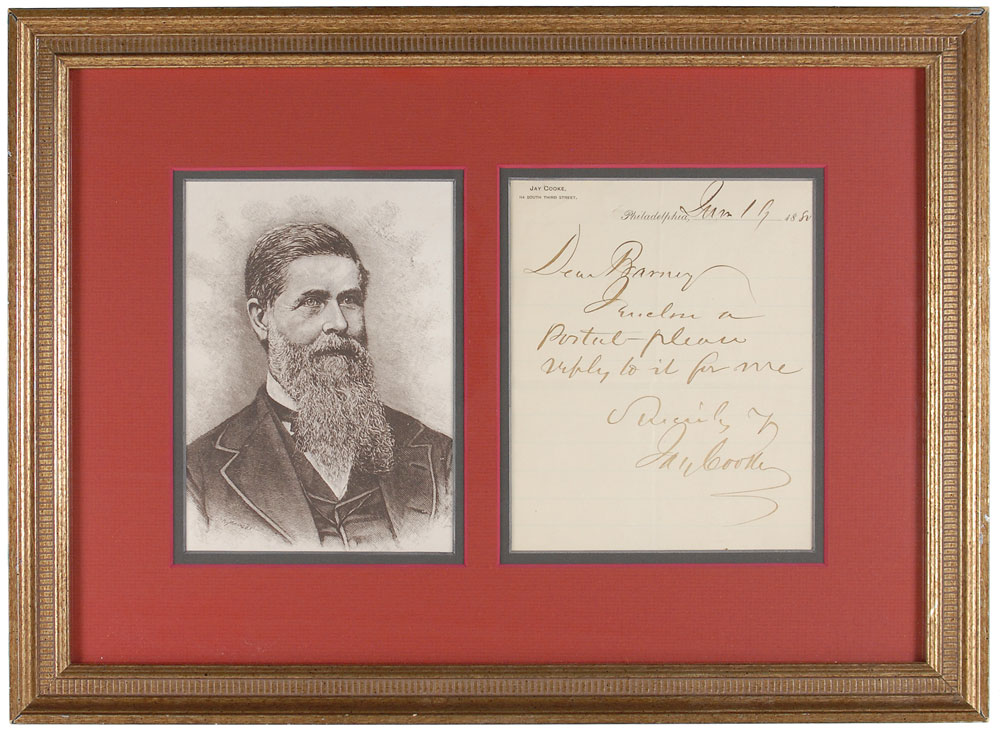 JAY COOKE,
114 SOUTH THIRD STREET,
Philadelphia, 19 188
Dear Barney
I enclose a
Postal - please
reply to it for me
Sincerely Yr
Jay Cooke